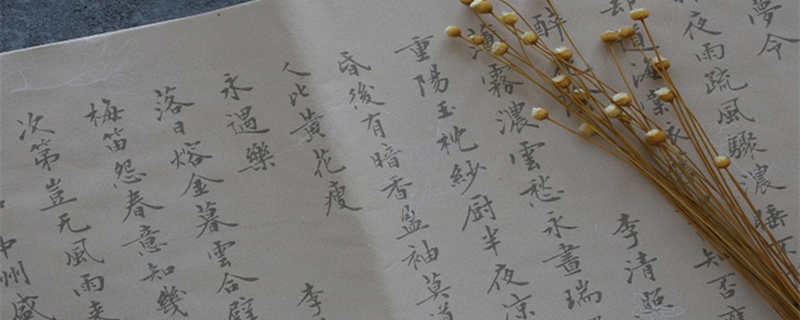 夢令
夜雨疏風驟濃睡不
却道海棠 知否應
醉 李清照
霧濃雲愁永晝瑞
重陽玉枕紗厨半夜凉
昏後有暗香盈袖莫道
人比黃花瘦
永遇樂 李
落日熔金暮雲合璧
梅笛怨春意知幾
次第豈无風雨来
中州盛